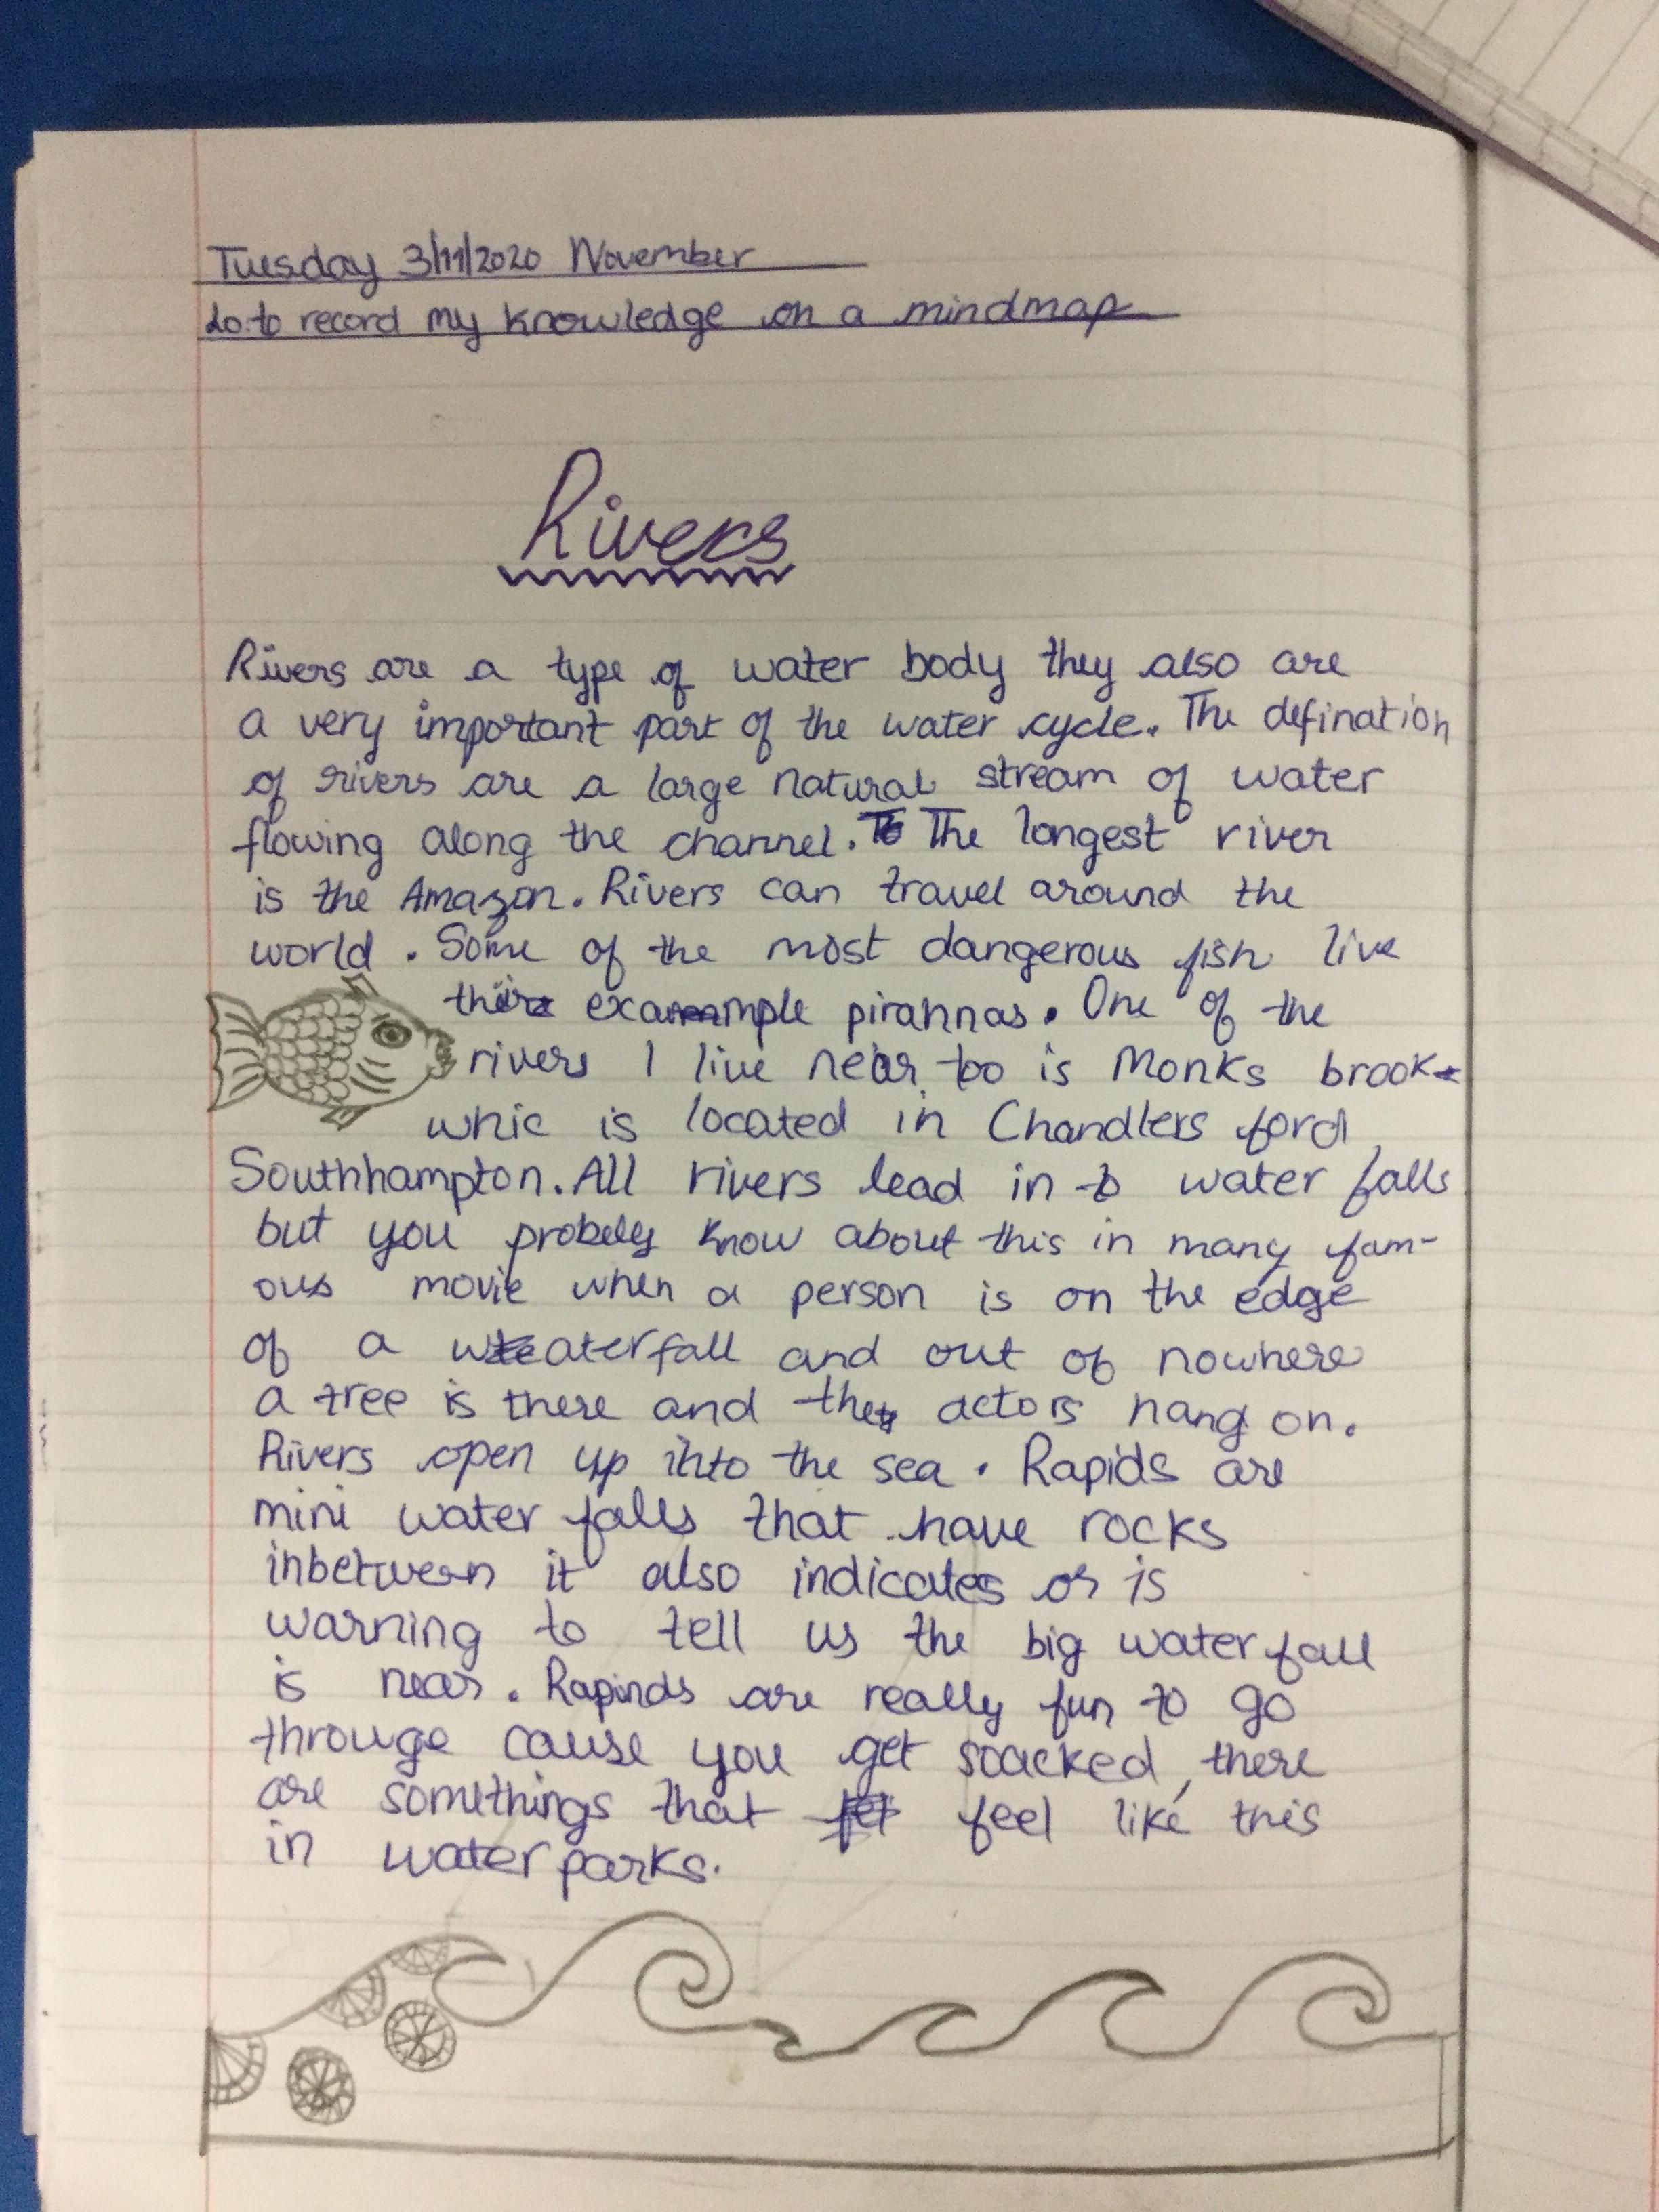 Tuesday 3/11/2020 November
Lo: to record my knowledge on a mindmap
Rivers
Rivers are a type of water body they also are
a very important part of the water cycle. The defination
of rivers are a large natural stream of water
flowing along the channel. The longest river
is the Amazon. Rivers can travel around the
world. Some of the most dangerous fish live
example pirahnas. One of the
rivers I live near too is Monks brook
whic is located in Chandlers ford
Southhampton. All rivers lead in to water falls
but you probely know about this in many fam-
ous movie when a person is on the edge
of a waterfall and out of nowhere
a tree is there and the actors hang on.
Rivers open up into the sea. Rapids are
mini water falls that have rocks
inbetween it also indicates or is
warning to tell us the big waterfall
is near. Rapinds are really fun to go
througe cause you get soacked, there
are somethings that feel like this
in water parks.